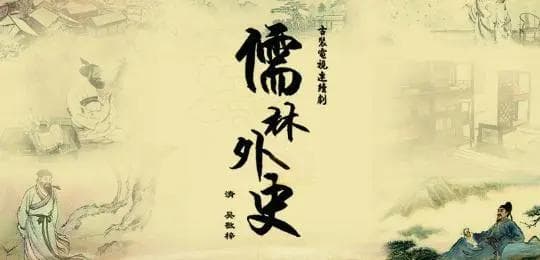 古裝電視連續劇
儒林外史
清 吳敬梓